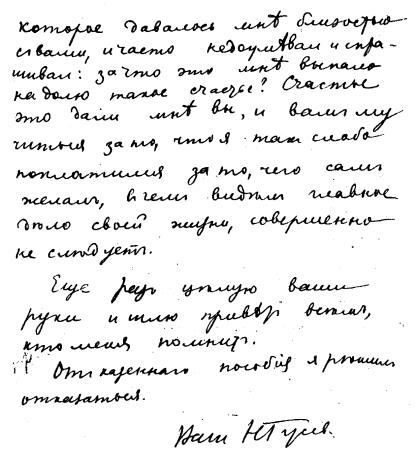 которое давалось мнѣ близостью
съ вами, и часто недоумѣвал и спра-
шивал: за что это мнѣ выпало
на долю такое счастье? Счастье
это дали мнѣ вы, и вамъ му
читься за то, что я так слабо
поплатился за то, чего самъ
желалъ, в чемъ видѣлъ главное
дѣло своей жизни, совершенно
не слѣдуетъ.
Еще разъ цѣлую ваши
руки и шлю привѣт всѣмъ,
кто меня помнитъ.
От казеннаго пособія я рѣшилъ
отказаться.
Ваш Н Гусев.